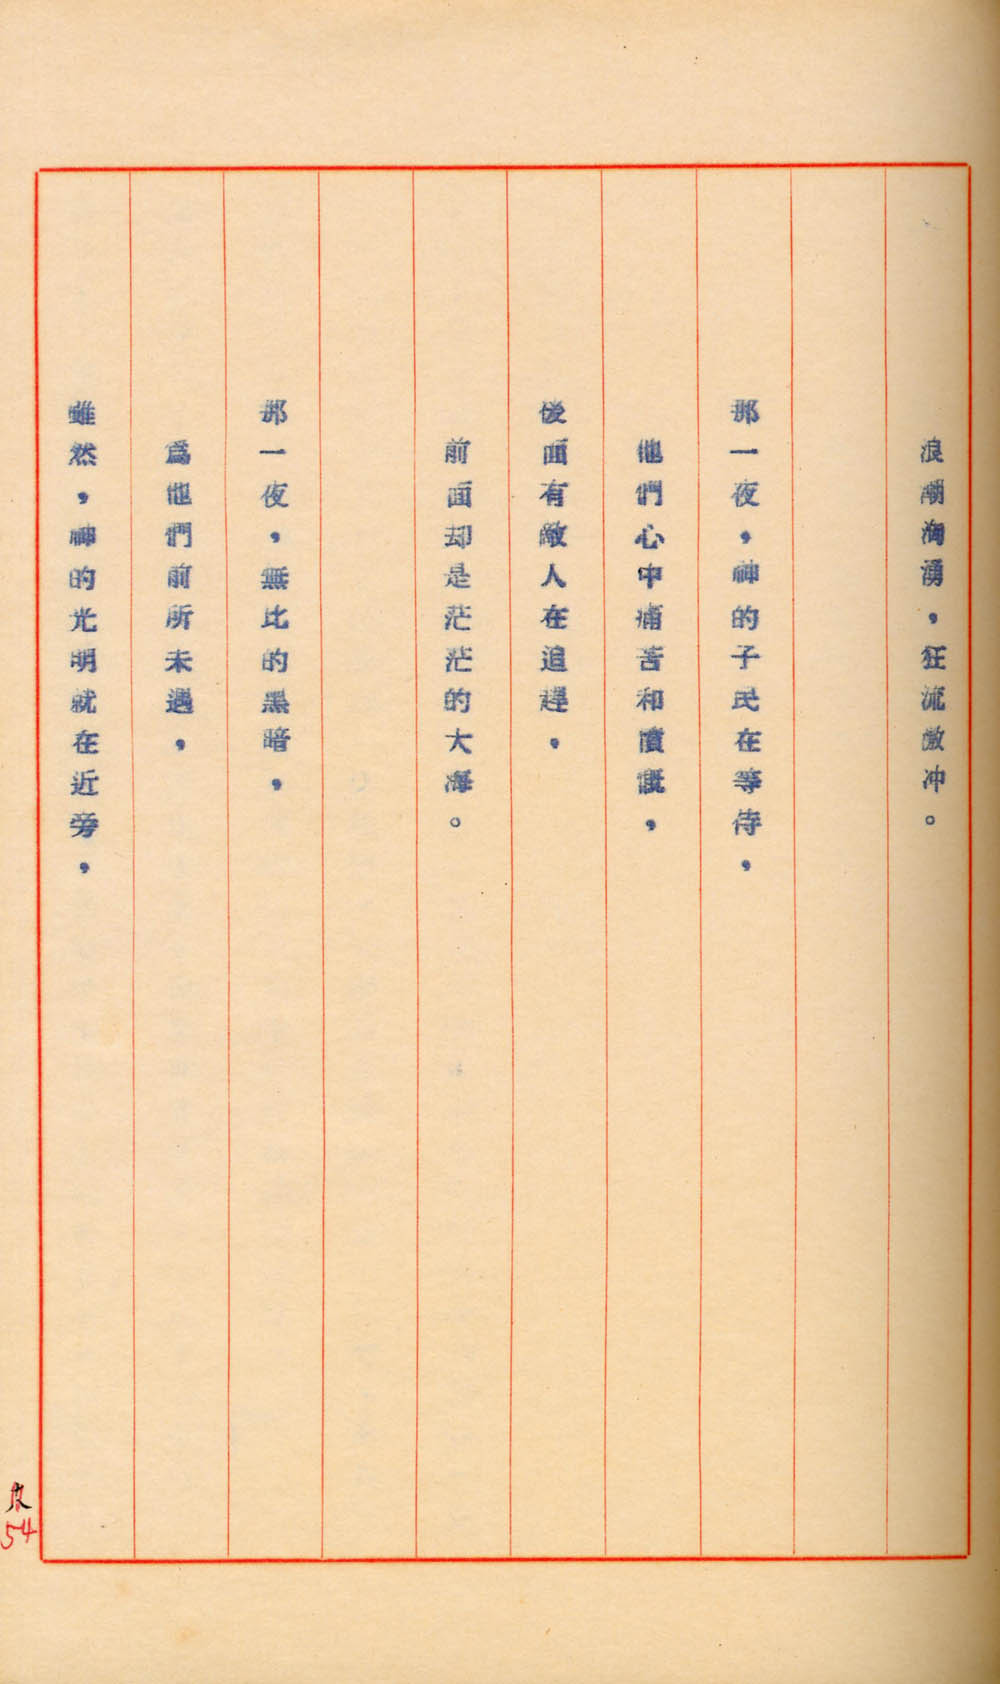 浪潮洶湧，狂流激冲。
那一夜，神的子民在等待，
他們心中痛苦和憤慨，
後面有敵人在追趕，
前面却是茫茫的大海。
那一夜，無比的黑暗，
爲他們前所未遇，
雖然，神的光明就在近旁，
54